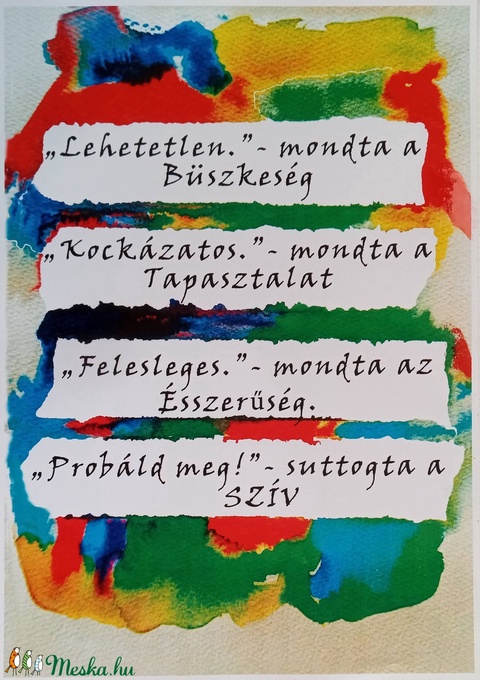 „Lehetetlen.”- mondta a
Büszkeség
„Kockázatos.”- mondta a
Tapasztalat
„Felesleges.”- mondta az
Ésszerűség.
„Probáld meg!”- suttogta a
SZÍV
Meska.hu